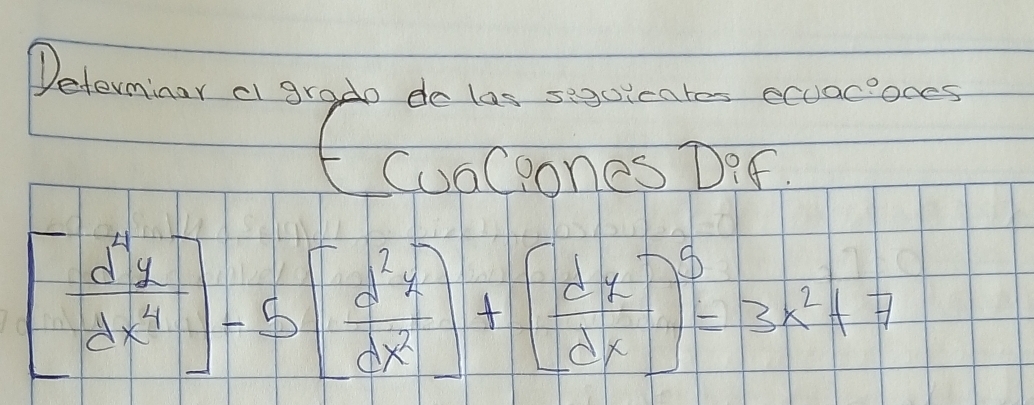 Determinar el grado de las siguientes ecuaciones
Ecuaciones Dif.
[d⁴y/dx⁴] - 5 [d²y/dx²] + [dy/dx]⁵ = 3x² + 7